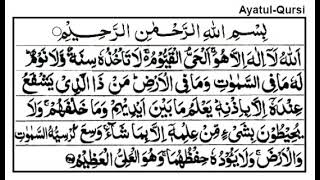 Ayatul-Qursi
بِسْمِ اللهِ الرَّحْمٰنِ الرَّحِيْمِ
اَللهُ لَآ اِلٰهَ اِلَّا هُوَ ۚ اَلْحَيُّ الْقَيُّوْمُ ۚ لَا تَاْخُذُهٗ سِنَةٌ وَّلَا نَوْمٌ ؕ
لَهٗ مَا فِي السَّمٰوٰتِ وَمَا فِي الْاَرْضِ ؕ مَنْ ذَا الَّذِيْ يَشْفَعُ
عِنْدَهٗٓ اِلَّا بِاِذْنِهٖ ؕ يَعْلَمُ مَا بَيْنَ اَيْدِيْهِمْ وَمَا خَلْفَهُمْ ۚ وَلَا
يُحِيْطُوْنَ بِشَيْءٍ مِّنْ عِلْمِهٖٓ اِلَّا بِمَا شَآءَ ۚ وَسِعَ كُرْسِيُّهُ السَّمٰوٰتِ
وَالْاَرْضَ ۚ وَلَا يَئُوْدُهٗ حِفْظُهُمَا ۚ وَهُوَ الْعَلِيُّ الْعَظِيْمُ